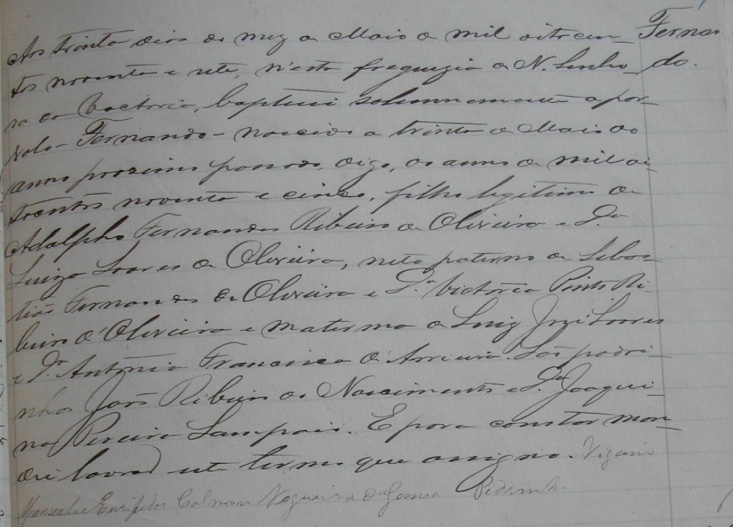 Aos trinta dias do mez de Maio de mil oitocen-
tos noventa e sete, n'esta freguezia de N. Senho-
ra da Victoria, baptisei solemnemente a par-
vulo - Fernando - nascido a trinta de Maio do
anno proximo passado, digo, do anno de mil oi-
tocentos noventa e cinco, filho legitimo de
Adolpho Fernandes Ribeiro de Oliveira e D.ª
Luiza Soares de Oliveira, neto paterno de Sebas-
tião Fernandes de Oliveira e D.ª Victoria Pinto Ri-
beiro d'Oliveira e materno de Luiz José Soares
e D.ª Antonia Francisca d'. São padri-
nhos João Ribeiro do Nascimento e D.ª Joaqui-
na Pereira Sampaio. E para constar man-
dei lavrar este termo que assigno. Vigario
Nogueira da Gama
Fernan-
do.